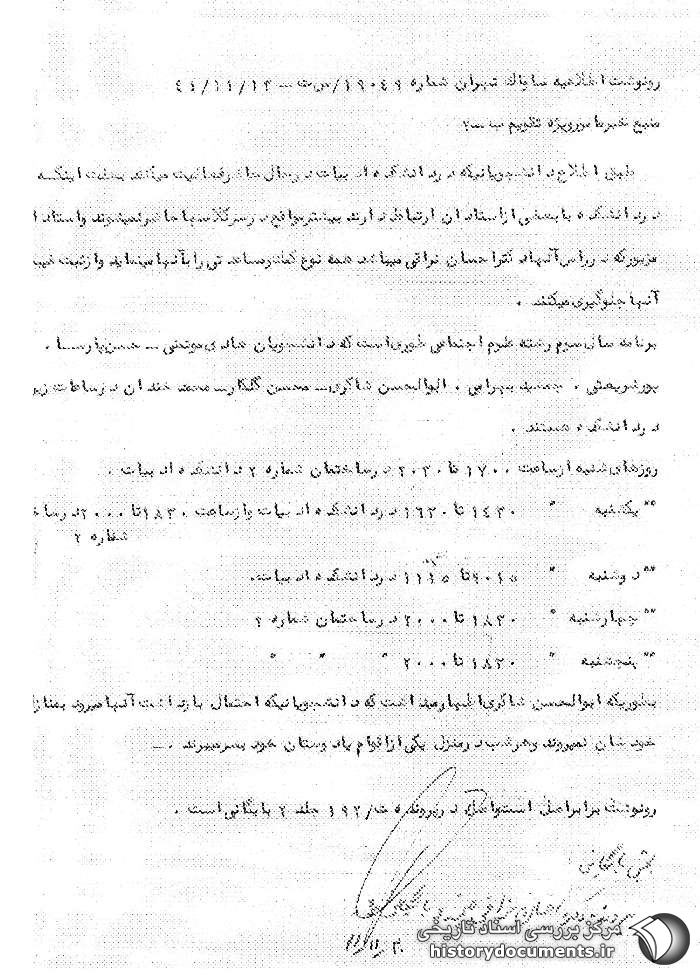 رونوشت اطلاعیه ساواك تهران شماره ۱۹۰۴۹/س‌ت – ۴۴/۱۱/۱۳
منبع خبر مامورویژه تقویم ب –۲
طبق اطلاع دانشجویانیکه در دانشکده ادبیات درحال حاضر فعالیت میکنند بعلت اینکه
در دانشکده با بعضی از استادان ارتباط دارند بیشتر مواقع در سر کلاسها حاضر نمیشوند و استاد ا
مزبور که در راس آنها دکتر احسان نراقی میباشد همه نوع کمك و مساعدتی را با آنها مینماید و از ثبت غیب
آنها جلوگیری میکنند .
برنامه سال سوم رشته علوم اجتماعی طوری است که دانشجویان هادی موتمنی – حسن پارسا .
جمشید بهرامی . ابوالحسن شاکری – محسن گلکار – محمد خندان در ساعات زیر
در دانشکده هستند .
روزهای شنبه از ساعت ۱۷۰۰ تا ۲۰۳۰ در ساختمان شماره ۲ دانشکده ادبیات .
"" یکشنبه " ۱۴۳۰ تا ۱۶۳۰ در دانشکده ادبیات و از ساعت ۱۸۳۰ تا ۲۰۰۰ در ساخ
شماره ۲
"" دوشنبه " ۹۰۱۵ تا ۱۱۴۵ در دانشکده ادبیات.
"" چهارشنبه " ۱۸۳۰ تا ۲۰۰۰ در ساختمان شماره ۲
"" پنجشنبه " ۱۸۳۰ تا ۲۰۰۰ " " "
بطوریکه ابوالحسن شاکری اظهار میداشت که دانشجویانیکه احتمال بازداشت آنها میرود بمناز
خودشان نمیروند و هر شب در منزل یکی از اقوام یا دوستان خود بسر میبرند . –
رونوشت برابر اصل است و اصل در پرونده ت/۱۹۲ جلد ۲ بایگانی است .
بخش بایگانی
مرکز بررسی اسناد تاریخی
historydocuments.ir